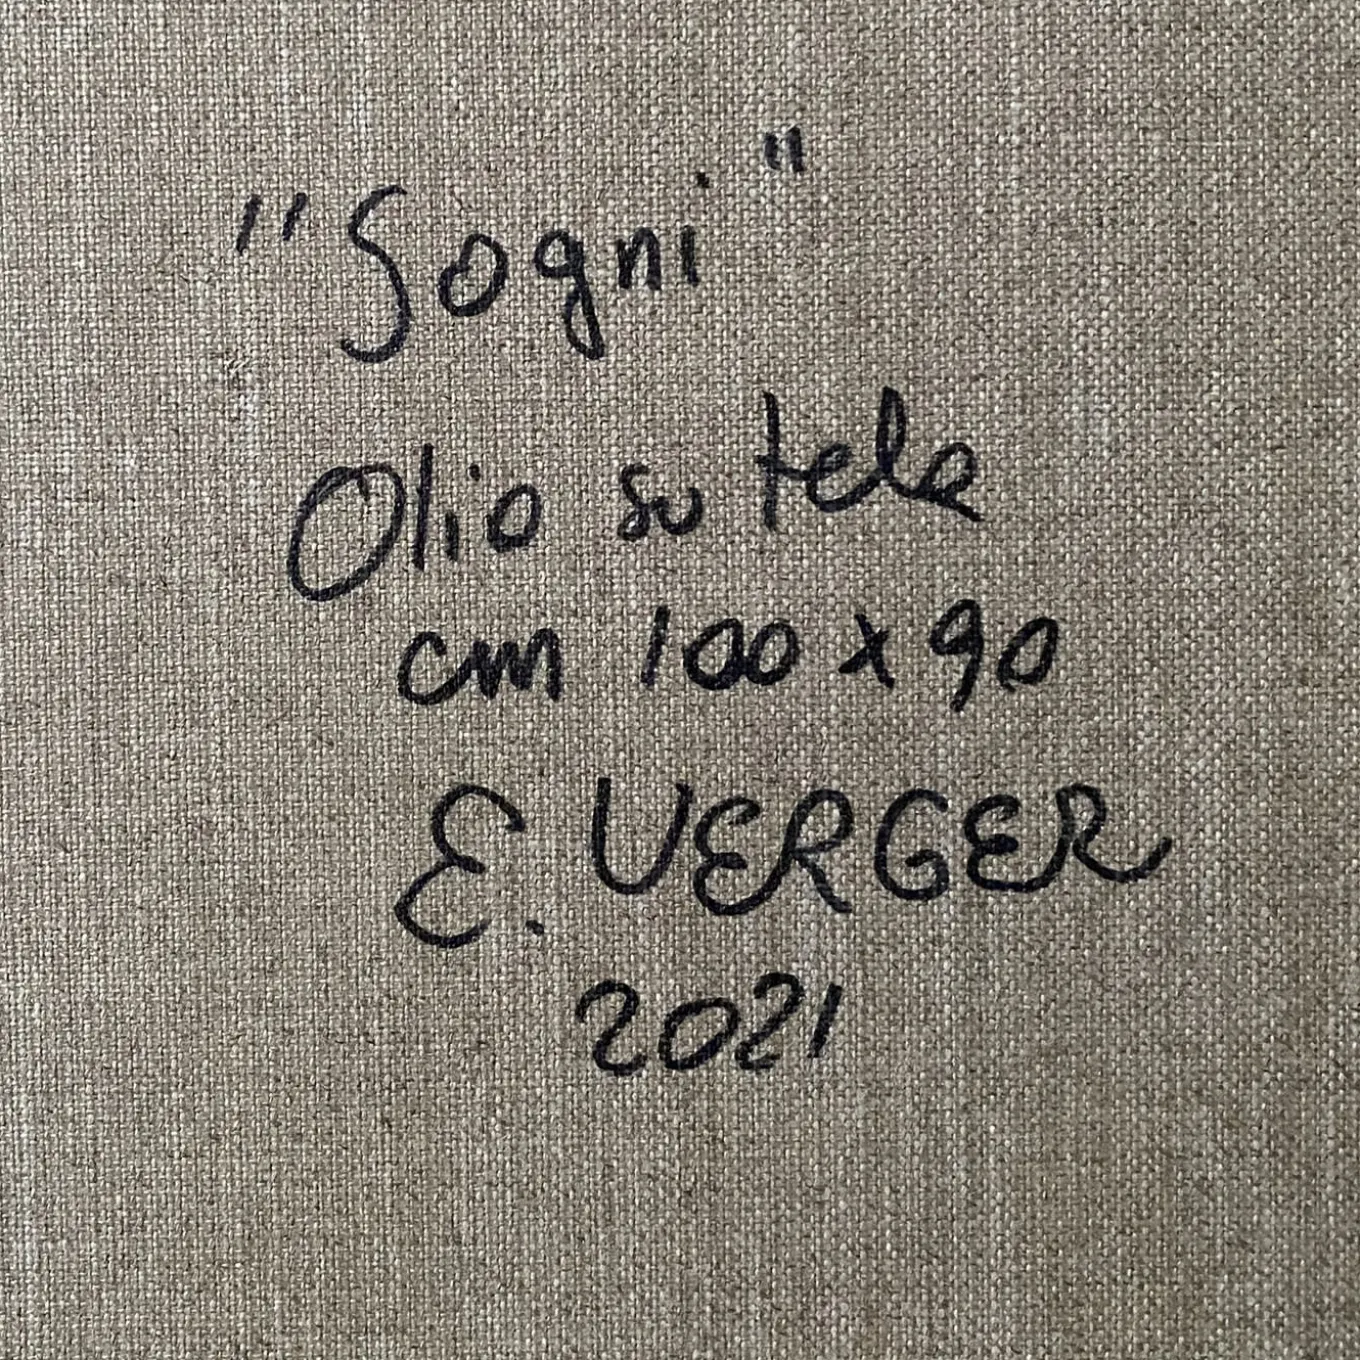 "Sogni"
Olio su tela
cm 100 x 90
E. VERGER
2021